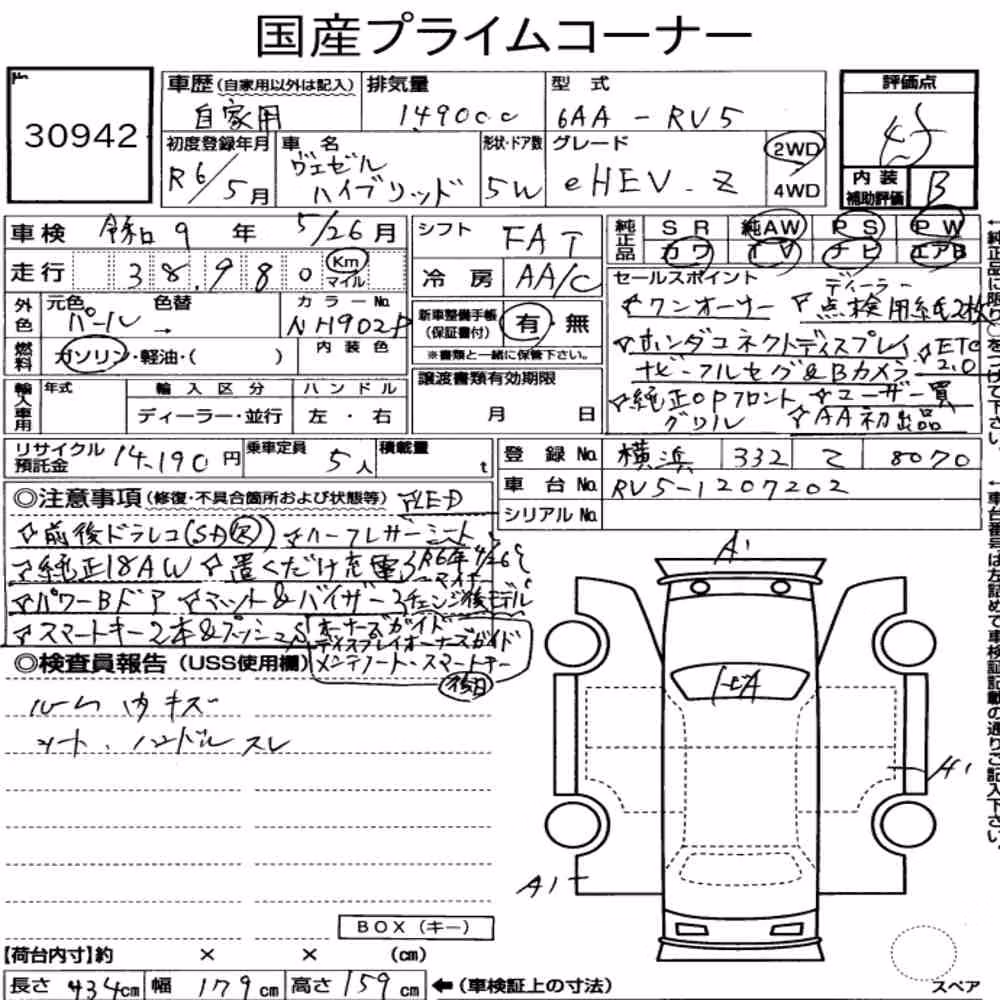 国産プライムコーナー
30942
車歴(自家用以外は記入) 排気量 型式 評価点
自家用 1490cc 6AA - RV5
初度登録年月 車名 形状・ドア数 グレード 2WD
R6/5月 ヴェゼル ハイブリッド 5W eHEV.Z 4WD
内装補助評価 B
車検 令和9年 5/26月 シフト FAT 純正品 SR 純AW PS PW
カワ TV ナビ エアB
走行 38,980 Km マイル 冷房 AA/C
セールスポイント
☆ワンオーナー ☆ディーラー点検用紙2枚
☆ホンダコネクトディスプレイ ☆ETC2.0
ナビ-フルセグ&Bカメラ
☆純正OPフロントグリル ☆ユーザー買
☆AA初出品
外色 元色 色替 カラーNo.
パール → NH902P
新車整備手帳(保証書付) 有・無
※書類と一緒に保管下さい。
燃料 ガソリン・軽油・( ) 内装色
譲渡書類有効期限
月 日
輸入車用 年式 輸入区分 ハンドル
ディーラー・並行 左・右
リサイクル預託金 14,190円 乗車定員 5人 積載量 t
登録No. 横浜 332 て 8070
車台No. RV5-1207202
シリアルNo.
◎注意事項(修復・不具合箇所および状態等) ☆LED
☆前後ドラレコ(SD欠) ☆ハーフレザーシート
☆純正18AW ☆置くだけ充電
R6年4/26〜マイナーチェンジ後モデル
☆パワーBドア ☆マット&バイザー
☆スマートキー2本&プッシュS
オーナーズガイド
ディスプレイオーナーズガイド
メンテノート・スマートキー
後日
◎検査員報告(USS使用欄)
ルーム内キズ
シート、ハンドルスレ
A1
A1
A1
BOX(キー)
【荷台内寸】約 × × (cm)
長さ 434cm 幅 179cm 高さ 159cm ←(車検証上の寸法)
スペア
←純正品に限り○をつけて下さい。
←車台番号は左詰めで車検証記載の通りご記入下さい。